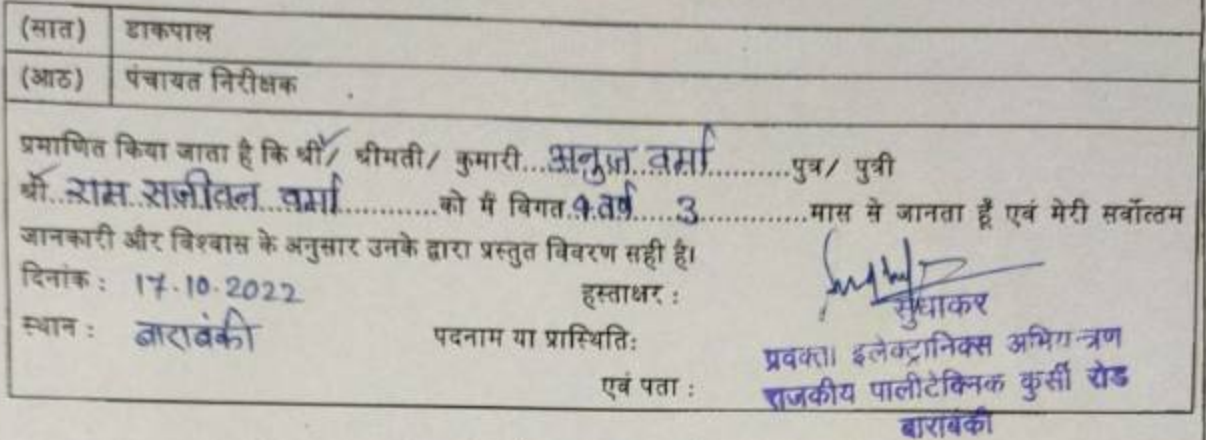 (सात) डाकपाल
(आठ) पंचायत निरीक्षक
प्रमाणित किया जाता है कि श्री/ श्रीमती/ कुमारी...अनुज वर्मा...........पुत्र/ पुत्री
श्री..राम सजीवन वर्मा............को मैं विगत.9.वर्ष.....3.............मास से जानता हूँ एवं मेरी सर्वोत्तम
जानकारी और विश्वास के अनुसार उनके द्वारा प्रस्तुत विवरण सही है।
दिनांक : 17.10.2022 हस्ताक्षर :
सुधाकर
स्थान : बाराबंकी पदनाम या प्रास्थिति:
प्रवक्ता इलेक्ट्रानिक्स अभियन्त्रण
एवं पता : राजकीय पालीटेक्निक कुर्सी रोड
बाराबंकी